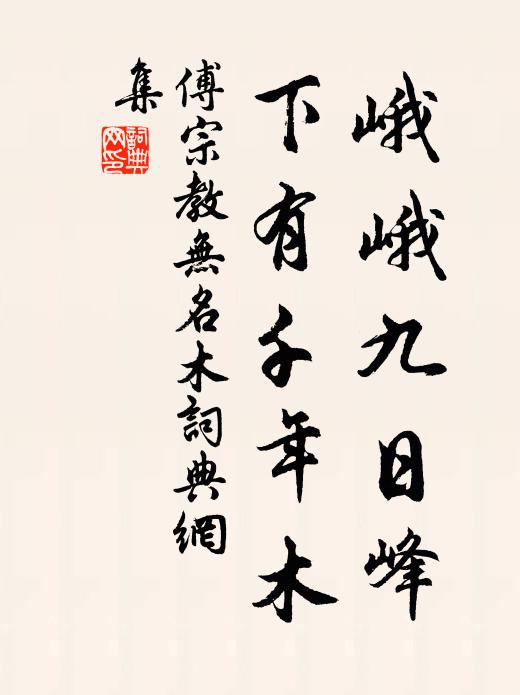 峨峨九日峰
下有千年木
傅宗教無名木詞典網
集
詞典
网印